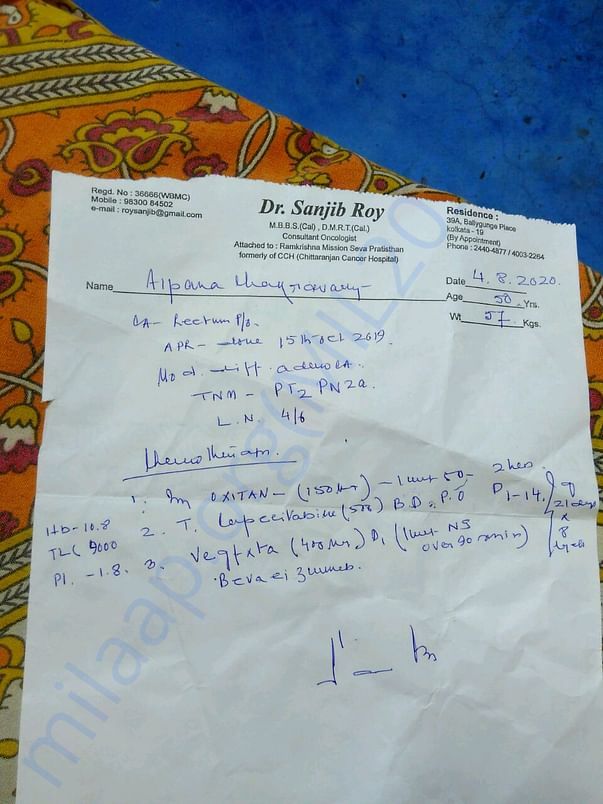 Regd. No : 36666(WBMC)
Mobile : 98300 84502
e-mail : roysanjib@gmail.com
Dr. Sanjib Roy
M.B.B.S.(Cal) , D.M.R.T.(Cal.)
Consultant Oncologist
Attached to : Ramkrishna Mission Seva Pratisthan
formerly of CCH (Chittaranjan Cancer Hospital)
Residence :
39A, Ballygunge Place
kolkata - 19
(By Appointment)
Phone : 2440-4877 / 4003-2264
Name Alpana
Date 4.8.2020.
Age 50 Yrs.
Wt 57 Kgs.
CA- Rectum P/o.
APR - done 15th Oct 2019.
Mod. diff. adeno CA.
TNM - PT2 PN2a.
L.N. 4/6
1. Inj OXITAN - (150mg) - 2 hrs.
2. T. Capecitabine (500) B.D. P.O D1-14.
3. (400mg) D1 (1 unit NS over 90 min)
21 days
x
8
cycle
Hb - 10.8
TLC 9000
Pl. - 1.8.
milaap.org